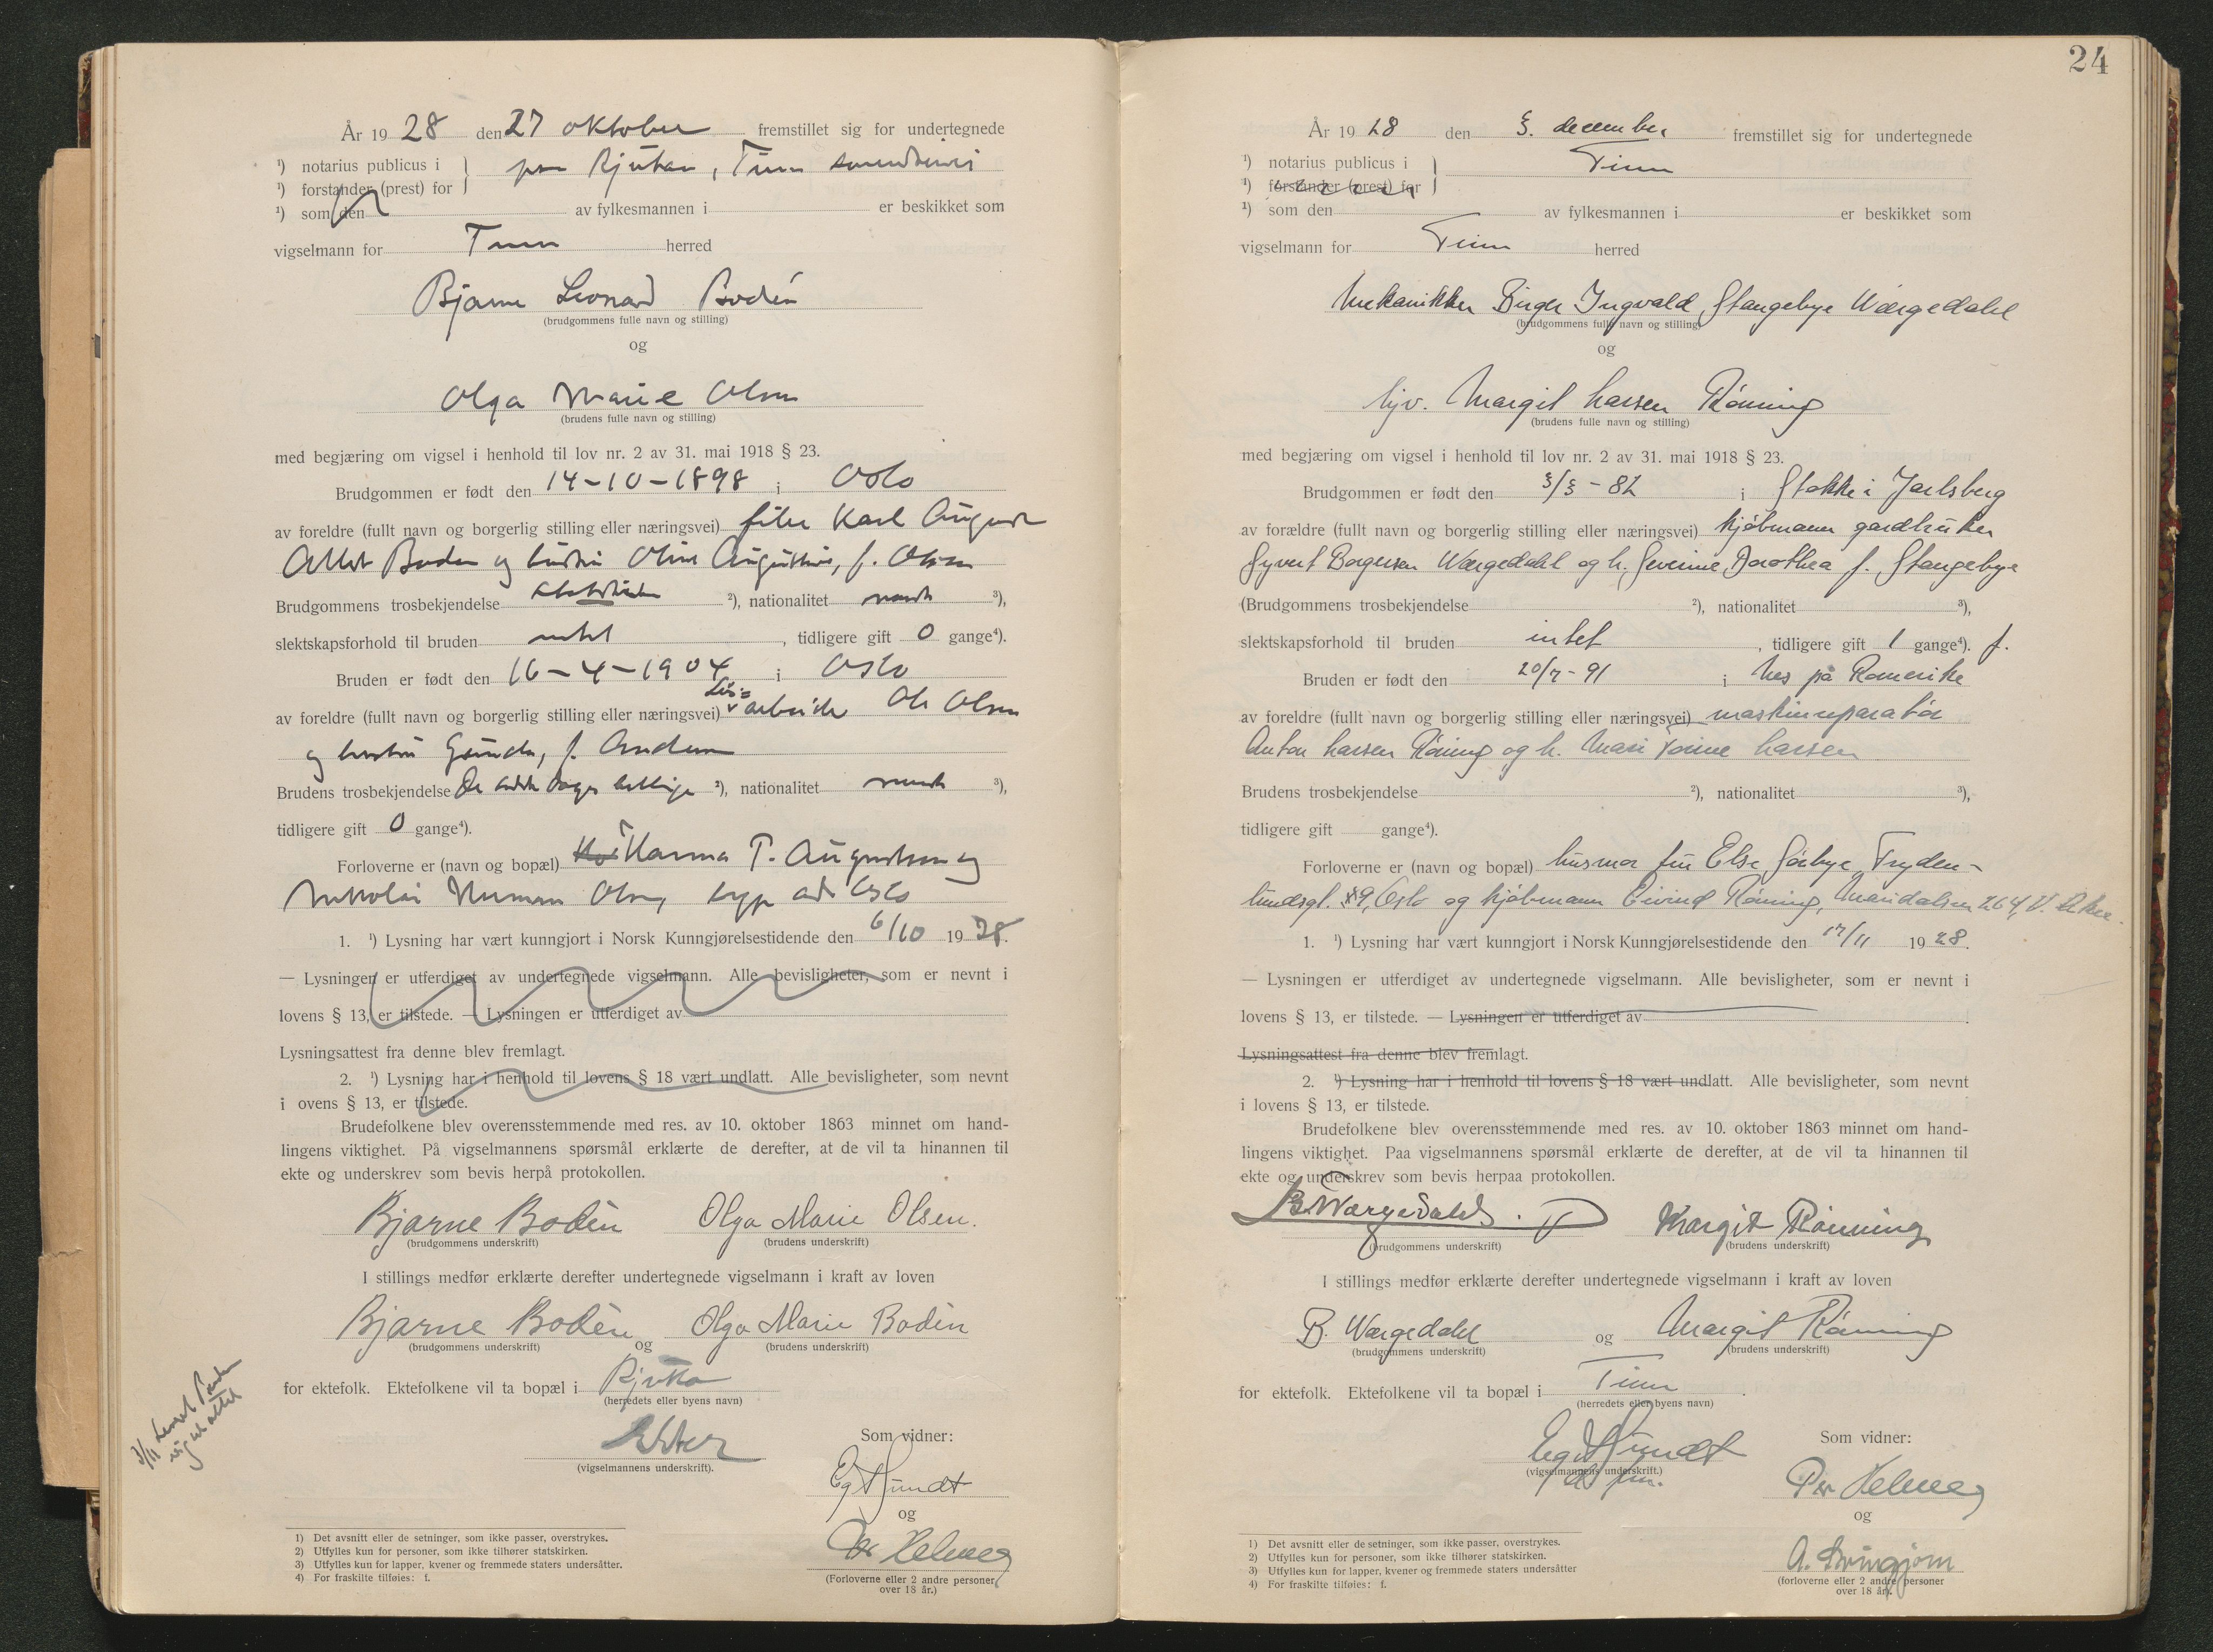 År 19 28 den 27 oktober fremstillet sig for undertegnede
¹) notarius publicus i
Rjukan, Tinn
¹) forstander (prest) for
¹) som den av fylkesmannen i er beskikket som
vigselmann for Tinn herred
Bjarne Leonard Bodén
(brudgommens fulle navn og stilling)
og
Olga Marie Olsen
(brudens fulle navn og stilling)
med begjæring om vigsel i henhold til lov nr. 2 av 31. mai 1918 § 23.
Brudgommen er født den 14-10-1898 i Oslo
av foreldre (fullt navn og borgerlig stilling eller næringsvei) filer Karl August
Boden og hustru Augustine, f. Olsen
Brudgommens trosbekjendelse ²), nationalitet norsk ³),
slektskapsforhold til bruden intet , tidligere gift 0 gange⁴).
Bruden er født den 16-4-1904 i Oslo
av foreldre (fullt navn og borgerlig stilling eller næringsvei) arbeider Ole Olsen
og hustru Gunda, f. Andersen
Brudens trosbekjendelse De siste dages hellige ²), nationalitet norsk ³),
tidligere gift 0 gange⁴).
Forloverne er (navn og bopæl) Hanna T. Augustsen og
Nikolai Herman Olsen, Oslo
1. ¹) Lysning har vært kunngjort i Norsk Kunngjørelsestidende den 6/10 19 28.
— Lysningen er utferdiget av undertegnede vigselmann. Alle bevisligheter, som er nevnt i
lovens § 13, er tilstede. — Lysningen er utferdiget av
Lysningsattest fra denne blev fremlagt.
2. ¹) Lysning har i henhold til lovens § 18 vært undlatt. Alle bevisligheter, som nevnt
i ovens § 13, er tilstede.
Brudefolkene blev overensstemmende med res. av 10. oktober 1863 minnet om hand-
lingens viktighet. På vigselmannens spørsmål erklærte de derefter, at de vil ta hinannen til
ekte og underskrev som bevis herpå protokollen.
Bjarne Bodén Olga Marie Olsen.
(brudgommens underskrift) (brudens underskrift)
I stillings medfør erklærte derefter undertegnede vigselmann i kraft av loven
Bjarne Bodén og Olga Marie Bodén
(brudgommens underskrift) (brudens underskrift)
for ektefolk. Ektefolkene vil ta bopæl i Rjukan
(herredets eller byens navn)
3/11
Som vidner:
(vigselmannens underskrift).
Eg Sundt
og
Per Helmer
(Forloverne eller 2 andre personer
over 18 år.)
1) Det avsnitt eller de setninger, som ikke passer, overstrykes.
2) Utfylles kun for personer, som ikke tilhører statskirken.
3) Utfylles kun for lapper, kvener og fremmede staters undersåtter.
4) For fraskilte tilføies: f.
24
År 19 28 den 3. december fremstillet sig for undertegnede
¹) notarius publicus i
Tinn
¹) forstander (prest) for
¹) som den av fylkesmannen i er beskikket som
vigselmann for Tinn herred
Mekanikker Birger Ingvald Stangebye Wærgedahl
(brudgommens fulle navn og stilling)
og
hjv. Margit Larsen Rönning
(brudens fulle navn og stilling)
med begjæring om vigsel i henhold til lov nr. 2 av 31. mai 1918 § 23.
Brudgommen er født den 3/3 - 82 i Stokke i Jarlsberg
av forældre (fullt navn og borgerlig stilling eller næringsvei) kjöbmann gardbruker
Syvert Borgersen Wærgedahl og h. Severine Dorothea f. Stangebye
(Brudgommens trosbekjendelse ²), nationalitet ³),
slektskapsforhold til bruden intet , tidligere gift 1 gange⁴). f.
Bruden er født den 20/7 - 91 i Nes på Romerike
av foreldre (fullt navn og borgerlig stilling eller næringsvei) maskinreparatör
Anton Larsen Röning og h. Mari Larsen
Brudens trosbekjendelse ²), nationalitet ³),
tidligere gift gange⁴).
Forloverne er (navn og bopæl) husmor fru Else Tryden-
lundsgt. 9, Oslo og kjöbmann Eivind Röning, Maridalsvn 264, V. Aker.
1. ¹) Lysning har vært kunngjort i Norsk Kunngjørelsestidende den 17/11 19 28.
— Lysningen er utferdiget av undertegnede vigselmann. Alle bevisligheter, som er nevnt i
lovens § 13, er tilstede. — Lysningen er utferdiget av .
Lysningsattest fra denne blev fremlagt.
2. ¹) Lysning har i henhold til lovens § 18 vært undlatt. Alle bevisligheter, som nevnt
i lovens § 13, er tilstede.
Brudefolkene blev overensstemmende med res. av 10. oktober 1863 minnet om hand-
lingens viktighet. Paa vigselmannens spørsmål erklærte de derefter, at de vil ta hinannen til
ekte og underskrev som bevis herpaa protokollen.
B Wærgedahl. Margit Rönning
(brudgommens underskrift) (brudens underskrift)
I stillings medfør erklærte derefter undertegnede vigselmann i kraft av loven
B. Wærgedahl og Margit Röning
(brudgommens underskrift) (brudens underskrift)
for ektefolk. Ektefolkene vil ta bopæl i Tinn .
(herredets eller byens navn)
Eg Sundt
Som vidner:
(vigselmannens underskrift.)
Per Helmer
og
A. Svingjom
(forloverne eller 2 andre personer
over 18 år).
1) Det avsnitt eller de setninger, som ikke passer, overstrykes.
2) Utfylles kun for personer, som ikke tilhører statskirken.
3) Utfylles kun for lapper, kvener og fremmede staters undersåtter
4) For fraskilte tilføies: f.